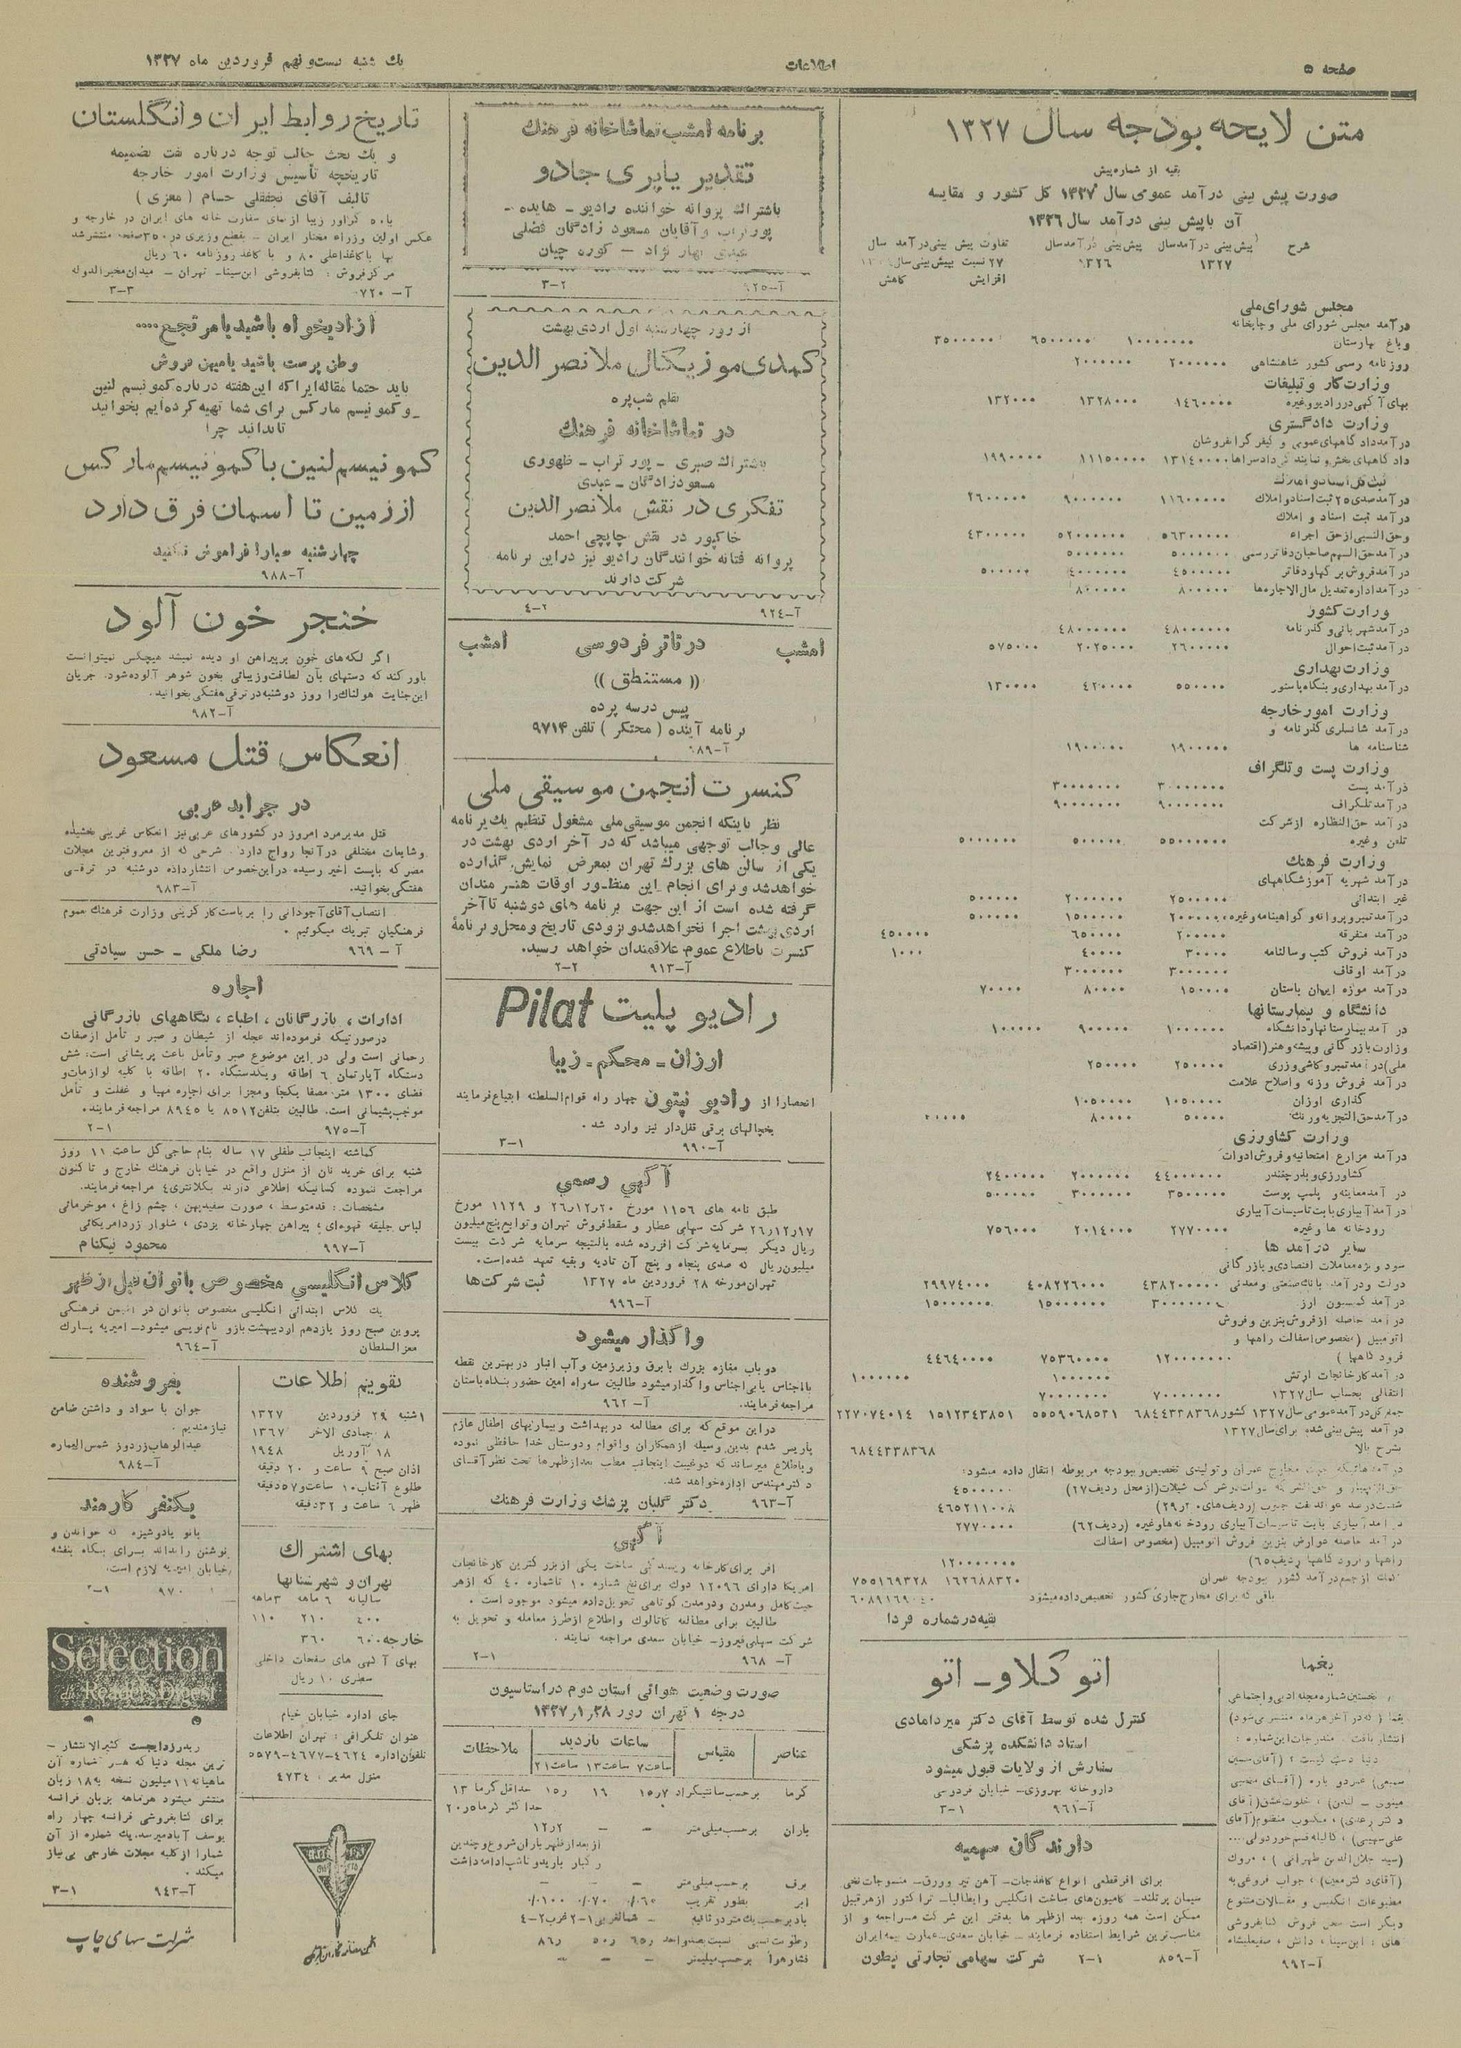 صفحه ۵
اطلاعات
یك شنبه بیست و نهم فروردین ماه ۱۳۲۷
متن لایحه بودجه سال ۱۳۲۷
بقیه از شماره پیش
صورت پیش بینی درآمد عمومی سال ۱۳۲۷ کل کشور و مقایسه
آن با پیش بینی درآمد سال ۱۳۲۶
شرح
پیش بینی درآمد سال ۱۳۲۷
پیش بینی درآمد سال ۱۳۲۶
تفاوت پیش بینی درآمد سال
۲۷ نسبت به پیش بینی سال
افزایش کاهش
مجلس شورای ملی
درآمد مجلس شورای ملی و چاپخانه
و باغ بهارستان ۱۰۰۰۰۰۰۰ ۶۵۰۰۰۰۰ ۳۵۰۰۰۰۰
روزنامه رسمی کشور شاهنشاهی ۲۰۰۰۰۰۰ ۲۰۰۰۰۰۰
وزارت کار و تبلیغات
بهای آگهی در رادیو و غیره ۱۴۶۰۰۰۰ ۱۳۲۸۰۰۰ ۱۳۲۰۰۰
وزارت دادگستری
درآمد دادگاههای عمومی و کیفر گرانفروشان
دادگاههای بخش و نمایندگی دادسراها ۱۳۱۴۰۰۰۰ ۱۱۱۵۰۰۰۰ ۱۹۹۰۰۰۰
ثبت کل اسناد و املاک
درآمد صدی ۲۵ ثبت اسناد و املاك ۱۱۶۰۰۰۰۰ ۹۰۰۰۰۰۰ ۲۶۰۰۰۰۰
درآمد ثبت اسناد و املاك
وحق النسبی از حق اجراء ۵۶۳۰۰۰۰۰ ۵۲۰۰۰۰۰۰ ۴۳۰۰۰۰۰
درآمد حق السهم صاحبان دفاتر رسمی ۵۰۰۰۰۰۰ ۵۰۰۰۰۰۰
درآمد فروش برگها و دفاتر ۴۵۰۰۰۰۰ ۴۰۰۰۰۰۰ ۵۰۰۰۰۰
درآمد اداره تعدیل مال الاجاره ها ۸۰۰۰۰۰ ۸۰۰۰۰۰
وزارت کشور
درآمد شهربانی و گذرنامه ۴۸۰۰۰۰۰ ۴۸۰۰۰۰۰
درآمد ثبت احوال ۲۶۰۰۰۰۰ ۲۰۲۵۰۰۰ ۵۷۵۰۰۰
وزارت بهداری
درآمد بهداری و بنگاه پاستور ۵۵۰۰۰۰ ۴۲۰۰۰۰ ۱۳۰۰۰۰
وزارت امور خارجه
درآمد شانسلری گذرنامه و
شناسنامه ها ۱۹۰۰۰۰۰ ۱۹۰۰۰۰۰
وزارت پست و تلگراف
درآمد پست ۳۰۰۰۰۰۰۰ ۳۰۰۰۰۰۰۰
درآمد تلگراف ۹۰۰۰۰۰۰۰ ۹۰۰۰۰۰۰۰
درآمد حق النظاره از شرکت
تلفن و غیره ۵۵۰۰۰۰۰ ۵۰۰۰۰۰ ۵۰۰۰۰۰۰
وزارت فرهنك
درآمد شهریه آموزشگاههای
غیر ابتدائی ۲۵۰۰۰۰۰ ۲۰۰۰۰۰۰ ۵۰۰۰۰۰
درآمد تمبر و پروانه و گواهینامه و غیره ۲۰۰۰۰۰۰ ۱۵۰۰۰۰۰ ۵۰۰۰۰۰
درآمد متفرقه ۲۰۰۰۰۰ ۶۵۰۰۰۰ ۴۵۰۰۰۰
درآمد فروش کتب و سالنامه ۳۰۰۰۰ ۴۰۰۰۰
درآمد اوقاف ۳۰۰۰۰۰۰ ۳۰۰۰۰۰۰
درآمد موزه ایران باستان ۱۵۰۰۰۰ ۸۰۰۰۰ ۷۰۰۰۰
دانشگاه و بیمارستانها
درآمد بیمارستانها و دانشگاه ۱۰۰۰۰۰۰ ۹۰۰۰۰۰ ۱۰۰۰۰۰
وزارت بازرگانی و پیشه و هنر (اقتصاد
ملی) درآمد تمبر و کاشی و زری ۲۵۰۰۰۰ ۲۵۰۰۰۰
درآمد فروش وزنه و اصلاح علامت
گذاری اوزان ۱۰۵۰۰۰۰ ۱۰۵۰۰۰۰
درآمد حق التجزیه ورنك ۵۰۰۰۰ ۸۰۰۰۰
وزارت کشاورزی
درآمد مزارع امتحانیه و فروش ادوات
کشاورزی و بذر چغندر ۴۴۰۰۰۰۰ ۲۰۰۰۰۰۰ ۲۴۰۰۰۰۰
درآمد معاینه و پلمپ پوست ۳۵۰۰۰۰۰ ۳۰۰۰۰۰۰ ۵۰۰۰۰۰
درآمد آبیاری بابت تاسیسات آبیاری
رودخانه ها و غیره ۲۷۷۰۰۰۰ ۲۰۱۴۰۰۰ ۷۵۶۰۰۰
سایر درآمد ها
سود ویژه معاملات اقتصادی و بازرگانی
دولت و درآمد بانك صنعتی و معدنی ۴۳۸۲۰۰۰۰۰ ۴۰۸۲۲۶۰۰۰ ۲۹۹۷۴۰۰۰
درآمد کمیسیون ارز ۳۰۰۰۰۰۰۰ ۱۵۰۰۰۰۰۰ ۱۵۰۰۰۰۰۰
درآمد حاصله از فروش بنزین و فروش
اتومبیل (مخصوص اسفالت راهها و
فرودگاهها) ۱۲۰۰۰۰۰۰۰ ۷۵۳۶۰۰۰۰ ۴۴۶۴۰۰۰۰
درآمد کارخانجات ارتش ۱۰۰۰۰۰۰ ۱۰۰۰۰۰۰
انتقالی بحساب سال ۱۳۲۷ ۷۰۰۰۰۰۰۰ ۷۰۰۰۰۰۰۰
جمع کل درآمد عمومی سال ۱۳۲۷ کشور ۶۸۴۴۳۳۸۳۶۸ ۵۵۵۹۰۶۸۵۳۱ ۱۵۱۲۳۴۳۸۵۱ ۲۲۷۰۷۴۰۱۴
درآمد پیش بینی شده برای سال ۱۳۲۷
بشرح بالا ۶۸۴۴۳۳۸۳۶۸
درآمدهائیکه جهت مخارج عمران و تولیدی تخصیص و ببودجه مربوطه انتقال داده میشود:
شرکت شیلات (از محل ردیف ۲۷) ۴۵۰۰۰۰۰
شصت درصد عوائد نفت جنوب (ردیف های ۲۰ر۲۹) ۴۶۵۲۱۱۰۰۸
درآمد آبیاری بابت تاسیسات آبیاری رودخانه ها و غیره (ردیف ۶۲) ۲۷۷۰۰۰۰
درآمد حاصله عوارض بنزین فروش اتومبیل (مخصوص اسفالت
راهها و فرودگاهها ردیف ۶۵) ۱۲۰۰۰۰۰۰۰
درآمد کشور ببودجه عمران ۱۶۲۶۸۸۳۲۰ ۷۵۵۱۶۹۳۲۸
باقی که برای مخارج جاری کشور تخصیص داده میشود ۶۰۸۹۱۶۹۰۴۰
بقیه در شماره فردا
یغما
نخستین شماره مجله ادبی و اجتماعی
یغما (که در آخر هر ماه منتشر می شود)
انتشار یافت. مندرجات این شماره:
(آقای علی سهیلی)
(سید جلال الدین طهرانی)
جواب فروغی به
مطبوعات انگلیس و مقالات متنوع
دیگر است محل فروش کتابفروشی
های: ابن سینا، دانش، صفیعلیشاه
آ-۹۹۲
اتو کلاو - اتو
کنترل شده توسط آقای دکتر میردامادی
استاد دانشکده پزشکی
سفارش از ولایات قبول میشود
داروخانه بهروزی - خیابان فردوسی
آ-۹۶۱ ۱-۳
دارندگان سهمیه
برای هر قطعی انواع کاغذجات - آهن تیر و ورق - منسوجات نخی
سیمان پرتلند - کامیون های ساخت انگلیس و ایطالیا - تراکتور از هر قبیل
ممکن است همه روزه بعد از ظهر ها بدفتر این شرکت مراجعه و از
مناسب ترین شرایط استفاده فرمایند - خیابان سعدی - عمارت بیمه ایران
آ-۸۵۹ ۱-۲ شرکت سهامی تجارتی پطون
برنامه امشب تماشاخانه فرهنك
تقدیر یا پری جادو
باشتراك پروانه خواننده رادیو - هایده -
پورتراب و آقایان مسعود زادگان فضلی
عبدی بهار نژاد - کوره چیان
آ-۹۲۵ ۲-۳
از روز چهارشنبه اول اردی بهشت
کمدی موزیکال ملا نصرالدین
بقلم شب پره
در تماشاخانه فرهنك
باشتراك صبری - پور تراب - ظهوری
مسعودزادگان - عبدی
تفکری در نقش ملا نصرالدین
خاکپور در نقش چاپچی احمد
پروانه فتانه خوانندگان رادیو نیز در این برنامه
شرکت دارند
آ-۹۲۴ ۲-۴
امشب در تاتر فردوسی امشب
((مستنطق))
پیس در سه پرده
برنامه آینده (محتکر) تلفن ۹۷۱۴
آ-۹۸۹
کنسرت انجمن موسیقی ملی
نظر باینکه انجمن موسیقی ملی مشغول تنظیم یك برنامه
عالی و جالب توجهی میباشد که در آخر اردی بهشت در
یکی از سالن های بزرك تهران بمعرض نمایش گذارده
خواهد شد و برای انجام این منظور اوقات هنرمندان
گرفته شده است از این جهت برنامه های دوشنبه تا آخر
اردی بهشت اجرا نخواهد شد و بزودی تاریخ و محل و برنامهٔ
کنسرت باطلاع عموم علاقمندان خواهد رسید.
آ-۹۱۳ ۲-۲
رادیو پلیت Pilat
ارزان - محکم - زیبا
انحصارا از رادیو نپتون چهار راه قوام السلطنه ابتیاع فرمایند
یخچالهای برقی قفل دار نیز وارد شد.
آ-۹۹۰ ۱-۳
آگهی رسمی
طبق نامه های ۱۱۵۶ مورخ ۲۰ر۱۲ر۲۶ و ۱۱۲۹ مورخ
۱۷ر۱۲ر۲۶ شرکت سهامی عطار و سقط فروش تهران و توابع پنج میلیون
ریال دیگر بسرمایه شرکت افزوده شده بالنتیجه سرمایه شرکت بیست
میلیون ریال که صدی پنجاه و پنج آن تادیه و بقیه تعهد شده است.
تهران مورخه ۲۸ فروردین ماه ۱۳۲۷ ثبت شرکت ها
آ-۹۹۶
واگذار میشود
دو باب مغازه بزرك با برق و زیرزمین و آب انبار در بهترین نقطه
با اجناس یا بی اجناس واگذار میشود طالبین سه راه امین حضور بنگاه باستان
مراجعه فرمایند. آ-۹۶۲
در این موقع که برای مطالعه در بهداشت و بیماریهای اطفال عازم
پاریس شدم بدین وسیله از همکاران و اقوام و دوستان خدا حافظی نموده
و باطلاع میرساند که در غیبت اینجانب مطب بعد از ظهرها تحت نظر آقای
دکتر مهندس اداره خواهد شد.
آ-۹۶۳ دکتر گلبان پزشك وزارت فرهنك
آگهی
افر برای کارخانه ریسندگی ساخت یکی از بزرگترین کارخانجات
امریکا دارای ۱۲۰۹۶ دوك برای نخ شماره ۱۰ تا شماره ۴۰ که از هر
حیث کامل و مدرن و در مدت کوتاهی تحویل داده میشود موجود است.
طالبین برای مطالعه کاتالوك و اطلاع از طرز معامله و تحویل به
شرکت سهامی فیروز - خیابان سعدی مراجعه نمایند.
آ-۹۶۸ ۱-۲
صورت وضعیت هوائی استان دوم در استاسیون
درجه ۱ تهران روز ۲۸ر۱ر۱۳۲۷
عناصر مقیاس ساعات بازدید ملاحظات
ساعت ۷ ساعت ۱۳ ساعت ۲۱
گرما برحسب سانتیگراد ۷ر۱۵ ۱۶ ر۱۵ حداقل گرما ۱۳
حداکثر گرما ۵ر۲۰
باران برحسب میلی متر - - ۲ر۱۲
از بعد از ظهر باران شروع و چندین
رگبار بارید و تا شب ادامه داشت
برف برحسب میلی متر - - -
ابر بطور تقریب ۰/۰۶۰ ۰/۰۷۰ ۰/۰۱۰۰
باد برحسب یك متر در ثانیه - شمالغربی ۱-۲ غرب ۲-۴
رطوبت نسبی نسبت بصد واحد ر۶۵ ر۵۰ ر۸۶
فشار هوا برحسب میلیمتر - - -
تاریخ روابط ایران و انگلستان
و یك بحث جالب توجه درباره نفت بضمیمه
تاریخچه تأسیس وزارت امور خارجه
تالیف آقای نجفقلی حسام (معزی)
با ۵۰ گراور زیبا از بنای سفارت خانه های ایران در خارجه و
عکس اولین وزراء مختار ایران - بقطع وزیری در ۳۵۰ صفحه منتشر شد
بها با کاغذ اعلی ۸۰ و با کاغذ روزنامه ۶۰ ریال
مرکز فروش: کتابفروشی ابن سینا - تهران - میدان مخبرالدوله
آ-۷۲۰ ۳-۳
آزادیخواه باشید یا مرتجع....
وطن پرست باشید یا میهن فروش
باید حتما مقاله ایرا که این هفته درباره کمونیسم لنین
و کمونیسم مارکس برای شما تهیه کرده ایم بخوانید
تا بدانید چرا
کمونیسم لنین با کمونیسم مارکس
از زمین تا آسمان فرق دارد
چهارشنبه صبا را فراموش نکنید
آ-۹۸۸
خنجر خون آلود
اگر لکه های خون بر پیراهن او دیده نمیشد هیچکس نمیتوانست
باور کند که دستهای بآن لطافت و زیبائی بخون شوهر آلوده شود. جریان
این جنایت هولناك را روز دوشنبه در ترقی هفتگی بخوانید.
آ-۹۸۲
انعکاس قتل مسعود
در جراید عربی
قتل مدیر مرد امروز در کشورهای عربی نیز انعکاس غریبی بخشیده
و شایعات مختلفی در آنجا رواج دارد. شرحی که از معروفترین مجلات
مصر که با پست اخیر رسیده در این خصوص انتشار داده دوشنبه در ترقی
هفتگی بخوانید. آ-۹۸۳
انتصاب آقای آجودانی را بریاست کارگزینی وزارت فرهنك عموم
فرهنگیان تبریك میگوئیم.
آ-۹۶۹ رضا ملکی - حسن سیادتی
اجاره
ادارات، بازرگانان، اطباء، بنگاههای بازرگانی
در صورتیکه فرموده اند عجله از شیطان و صبر و تأمل از صفات
رحمانی است ولی در این موضوع صبر و تأمل باعث پریشانی است: شش
دستگاه آپارتمان ۶ اطاقه و یکدستگاه ۲۰ اطاقه با کلیه لوازمات و
فضای ۱۳۰۰ متر مصفا یکجا و مجزا برای اجاره مهیا و غفلت و تأمل
موجب پشیمانی است. طالبین بتلفن ۸۵۱۲ یا ۸۹۴۵ مراجعه فرمایند.
آ-۹۷۵ ۱-۲
گماشته اینجانب طفلی ۱۷ ساله بنام حاجی گل ساعت ۱۱ روز
شنبه برای خرید نان از منزل واقع در خیابان فرهنك خارج و تاکنون
مراجعت ننموده کسانیکه اطلاعی دارند بکلانتری ۴ مراجعه فرمایند.
مشخصات: قد متوسط، صورت سفید پهن، چشم زاغ، مو خرمائی
لباس جلیقه قهوه ای، پیراهن چهارخانه یزدی، شلوار زرد امریکائی
آ-۹۹۷ محمود نیکنام
کلاس انگلیسی مخصوص بانوان قبل از ظهر
یك کلاس ابتدائی انگلیسی مخصوص بانوان در انجمن فرهنگی
پروین صبح روز یازدهم اردیبهشت باز و نام نویسی میشود - امیریه پارك
معز السلطان آ-۹۶۴
تقویم اطلاعات
۱شنبه ۲۹ فروردین ۱۳۲۷
۸ جمادی الاخر ۱۳۶۷
۱۸ آوریل ۱۹۴۸
اذان صبح ۹ ساعت و ۲۰ دقیقه
طلوع آفتاب ۱۰ ساعت و ۵۷ دقیقه
ظهر ۶ ساعت و ۳۲ دقیقه
بهای اشتراك
تهران و شهرستانها
سالیانه ۶ ماهه ۳ ماهه
۴۰۰ ۲۱۰ ۱۱۰
خارجه ۶۰۰ ۳۶۰
بهای آگهی های صفحات داخلی
سطری ۱۰ ریال
جای اداره خیابان خیام
عنوان تلگرافی: تهران اطلاعات
تلفون اداره ۴۶۲۴-۴۶۷۷-۵۵۷۹
منزل مدیر: ۴۷۳۴
بفروشنده
جوان با سواد و داشتن ضامن
نیازمندیم.
عبدالوهاب زردوز شمس العماره
آ-۹۸۴
یکنفر کارمند
بانو یا دوشیزه که خواندن و
نوشتن را بداند برای بنگاه بنفشه
خیابان امیریه لازم است.
۹۷۰
Sélection
du Reader's Digest
ریدرز دایجست کثیرالانتشار -
ترین مجله دنیا که هر شماره آن
ماهیانه ۱۱ میلیون نسخه به ۱۸ زبان
منتشر میشود هر ماهه بزبان فرانسه
برای کتابفروشی فرانسه چهار راه
یوسف آباد میرسد. یك شماره از آن
شما را از کلیه مجلات خارجی بی نیاز
میکند.
آ-۹۴۳ ۱-۳
شرکت سهامی چاپ